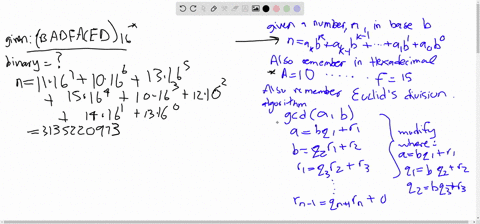 given: (BADFACED)16
binary = ?
n = 11·16^7 + 10·16^6 + 13·16^5
+ 15·16^4 + 10·16^3 + 12·16^2
+ 14·16^1 + 13·16^0
= 3135220973
given a number, n, in base b
→ n = a_k b^k + a_{k-1} b^{k-1} + ... + a_1 b^1 + a_0 b^0
Also remember in Hexadecimal
* A = 10 ...... F = 15
Also remember Euclid's division
algorithm
gcd(a, b)
a = bq_1 + r_1
b = q_2 r_1 + r_2
r_1 = q_3 r_2 + r_3
⋮
r_{n-1} = q_{n+1} r_n + 0
modify
where:
a = bq_1 + r_1
q_1 = b q_2 + r_2
q_2 = bq_3 + r_3